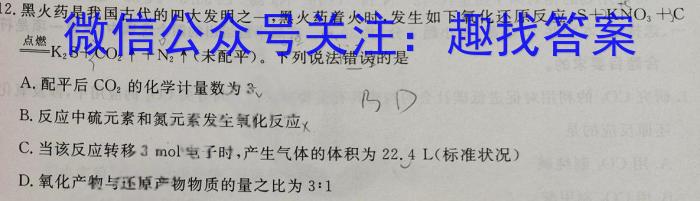 12.黑火药是我国古代的四大发明之一,黑火药着火时,发生如下氧化还原反应:S+KNO₃+C
点燃 K₂S+CO₂↑+N₂↑(未配平)。下列说法错误的是
微信公众号关注：趣找答案
A.配平后 CO₂ 的化学计量数为 3
B D
B.反应中硫元素和氮元素发生氧化反应
C.当该反应转移 3 mol 电子时,产生气体的体积为 22.4 L(标准状况)
D.氧化产物与还原产物物质的量之比为 3∶1